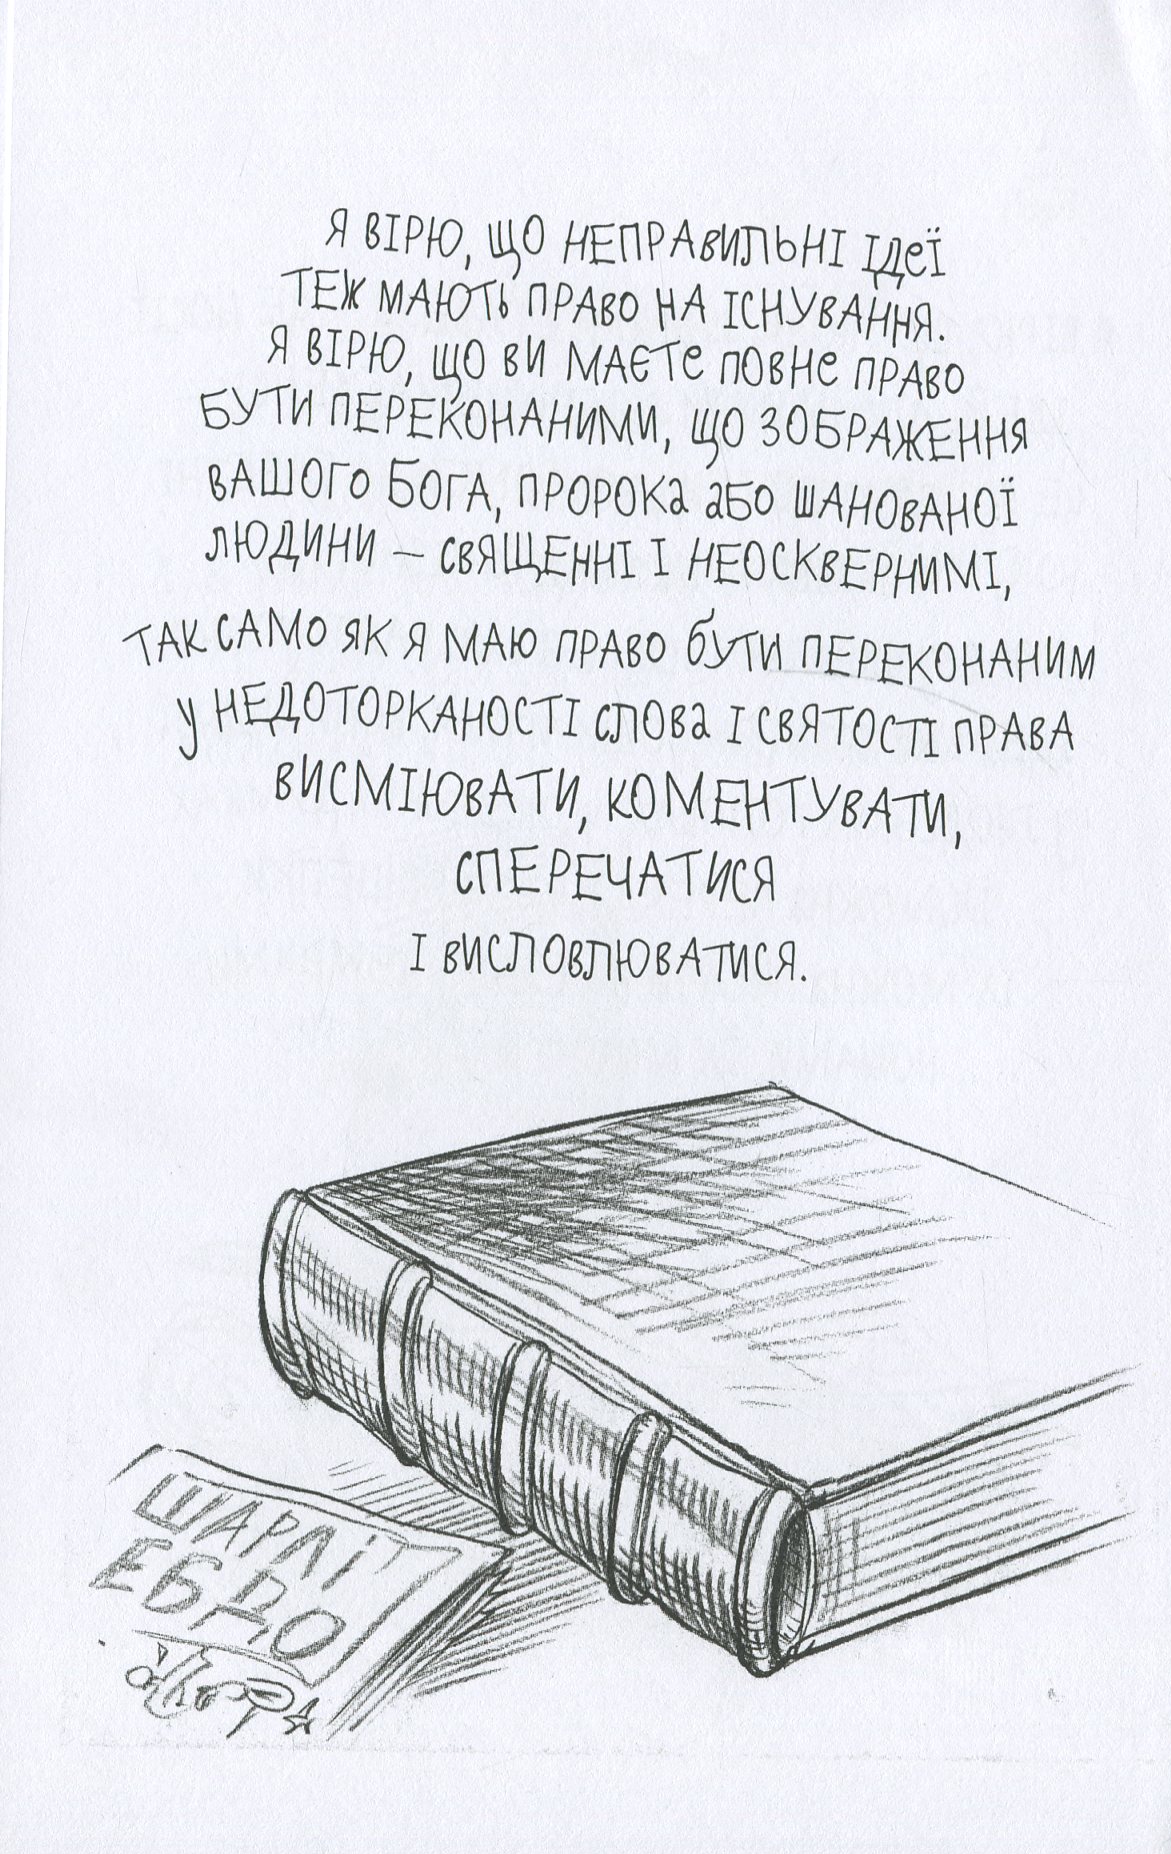 Я ВІРЮ, ЩО НЕПРАВИЛЬНІ ІДЕЇ
ТЕЖ МАЮТЬ ПРАВО НА ІСНУВАННЯ.
Я ВІРЮ, ЩО ВИ МАЄТЕ ПОВНЕ ПРАВО
БУТИ ПЕРЕКОНАНИМИ, ЩО ЗОБРАЖЕННЯ
ВАШОГО БОГА, ПРОРОКА АБО ШАНОВАНОЇ
ЛЮДИНИ – СВЯЩЕННІ І НЕОСКВЕРНИМІ,
ТАК САМО ЯК Я МАЮ ПРАВО БУТИ ПЕРЕКОНАНИМ
У НЕДОТОРКАНОСТІ СЛОВА І СВЯТОСТІ ПРАВА
ВИСМІЮВАТИ, КОМЕНТУВАТИ,
СПЕРЕЧАТИСЯ
І ВИСЛОВЛЮВАТИСЯ.
ШАРЛІ
ЕБДО